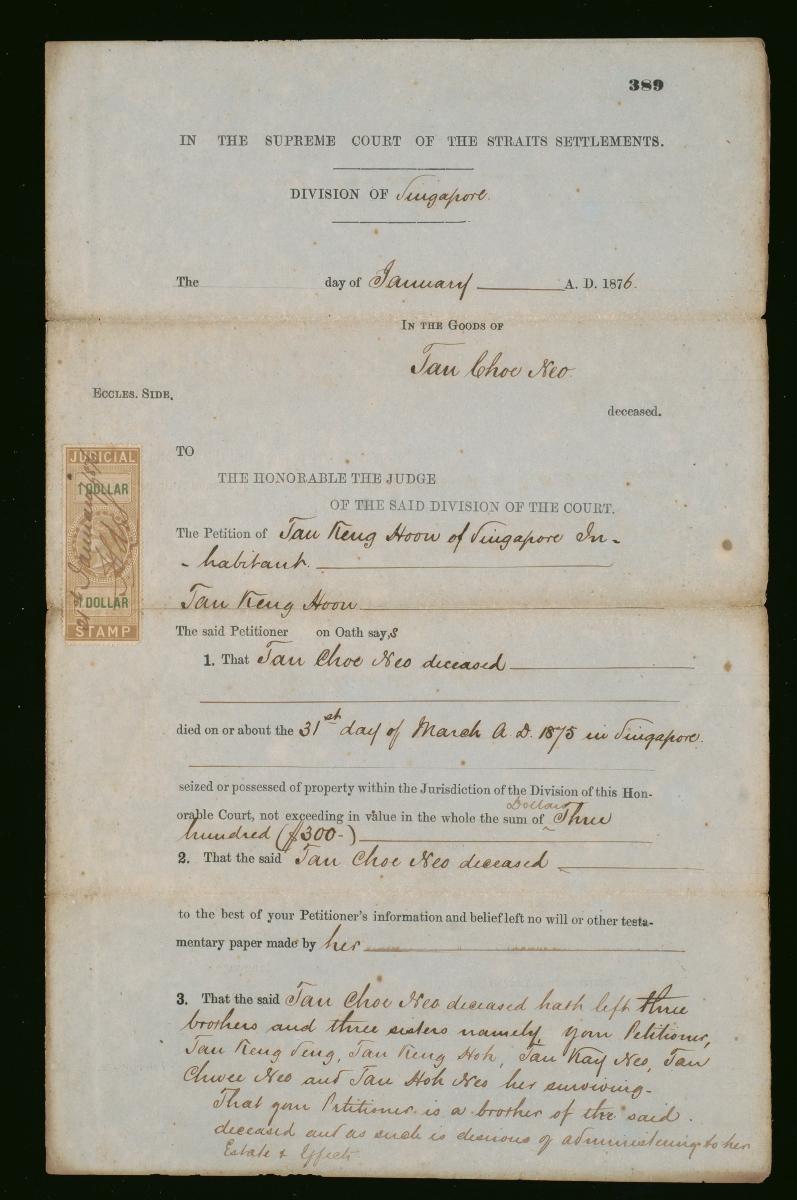 389
IN THE SUPREME COURT OF THE STRAITS SETTLEMENTS.
DIVISION OF Singapore.
The day of January A. D. 1876.
IN THE GOODS OF
Tan Choe Neo.
ECCLES. SIDE.
deceased.
JUDICIAL
1 DOLLAR
1 DOLLAR
STAMP
January
TO
THE HONORABLE THE JUDGE
OF THE SAID DIVISION OF THE COURT.
The Petition of Tan Keng Hoon of Singapore In-
-habitant.
Tan Keng Hoon
The said Petitioner on Oath say,s
1. That Tan Choe Neo deceased
died on or about the 31st day of March A. D. 1875 in Singapore.
seized or possessed of property within the Jurisdiction of the Division of this Hon-
orable Court, not exceeding in value in the whole the sum of Dollars Three
hundred ($300-)
2. That the said Tan Choe Neo deceased
to the best of your Petitioner's information and belief left no will or other testa-
mentary paper made by her
3. That the said Tan Choe Neo deceased hath left three
brothers and three sisters namely, your Petitioner,
Tan Keng Seng, Tan Keng Hoh, Tan Kay Neo, Tan
Chwee Neo and Tan Hoh Neo her surviving-
That your Petitioner is a brother of the said
deceased and as such is desirous of administering to her
Estate & Effects